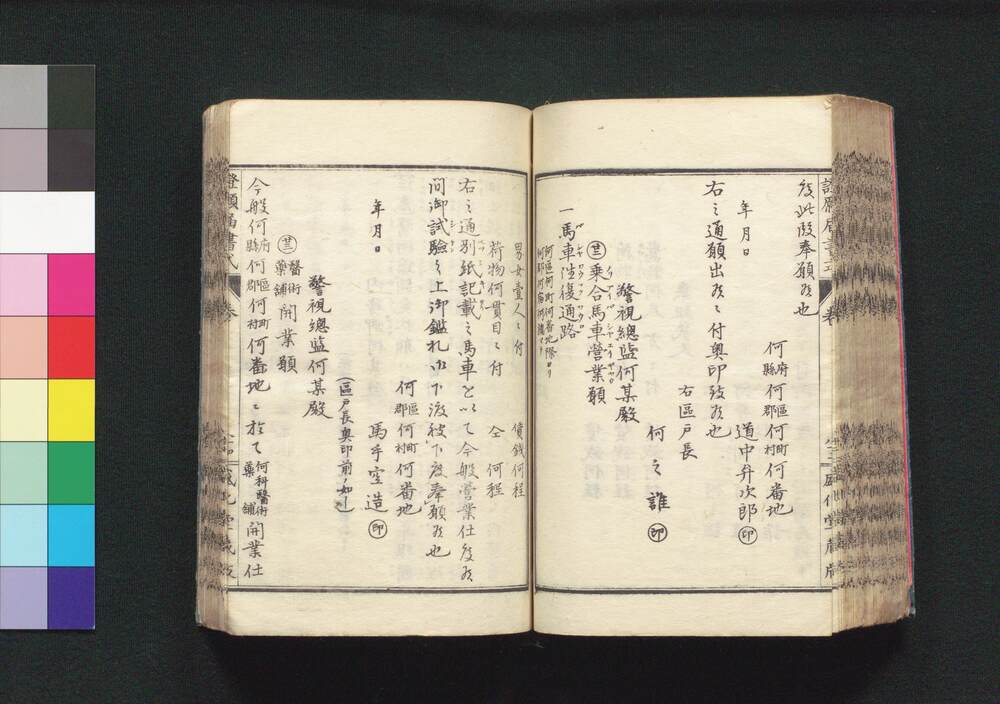 度此段奉願候也
何府縣何區郡何町村何番地
年月日　道中弁次郎㊞
右之通願出候ニ付奥印致候也
右區戸長
何之誰㊞
警視總監何某殿
乗合馬車營業願
一馬車往復通路
何區何町何番地際ヨリ
男女壹人ニ付　價錢何程
荷物何貫目ニ付　仝　何程
右之通別紙記載之馬車ヲ以て今般營業仕度候
間御試驗之上御鑑札御下渡被下度奉願候也
何區郡何町村何番地
年月日　馬手室造㊞
(區戸長奥印前ノ如シ)
警視總監何某殿
醫術藥舗開業願
今般何府縣何區郡何町村何番地ニ於て何科醫術藥舗開業仕